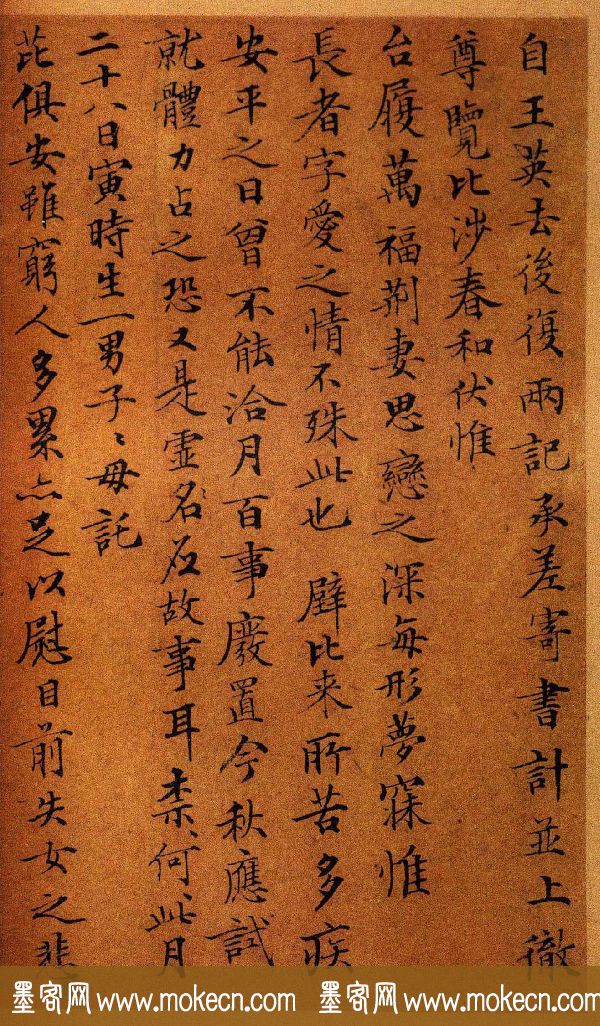 自王英去後復兩記承差寄書計並上徹
尊覽比涉春和伏惟
台履萬福荊妻思戀之深每形夢寐惟
長者字愛之情不殊此也 壁比来所苦多疾
安平之日曾不能洽月百事廢置今秋應試
就體力占之恐又是虛名應故事耳柰何〻此月
二十八日寅時生一男子〻母託
芘俱安雖窮人多累亦足以慰目前失女之悲
墨客网 www.mokecn.com 墨客网 www.mokecn.com